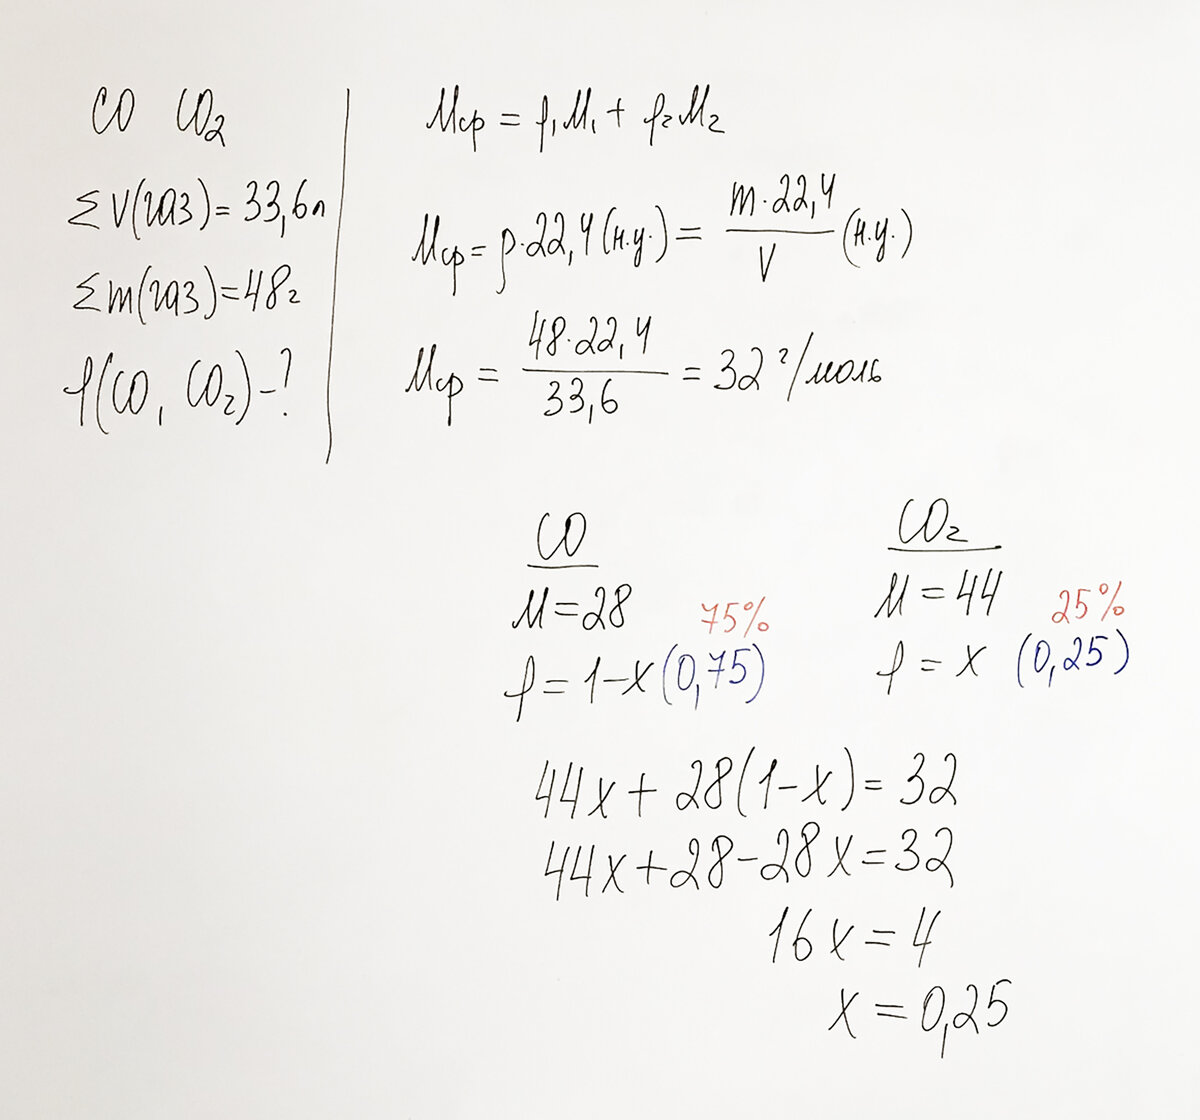 CO CO₂
ΣV(газ) = 33,6л
Σm(газ) = 48г
f(CO, CO₂) - ?
Mср = f₁M₁ + f₂M₂
Mср = ρ·22,4 (н.у.) = m·22,4 / V (н.у.)
Mср = 48·22,4 / 33,6 = 32 г/моль
CO
M = 28 75%
f = 1-x (0,75)
CO₂
M = 44 25%
f = x (0,25)
44x + 28(1-x) = 32
44x + 28 - 28x = 32
16x = 4
x = 0,25